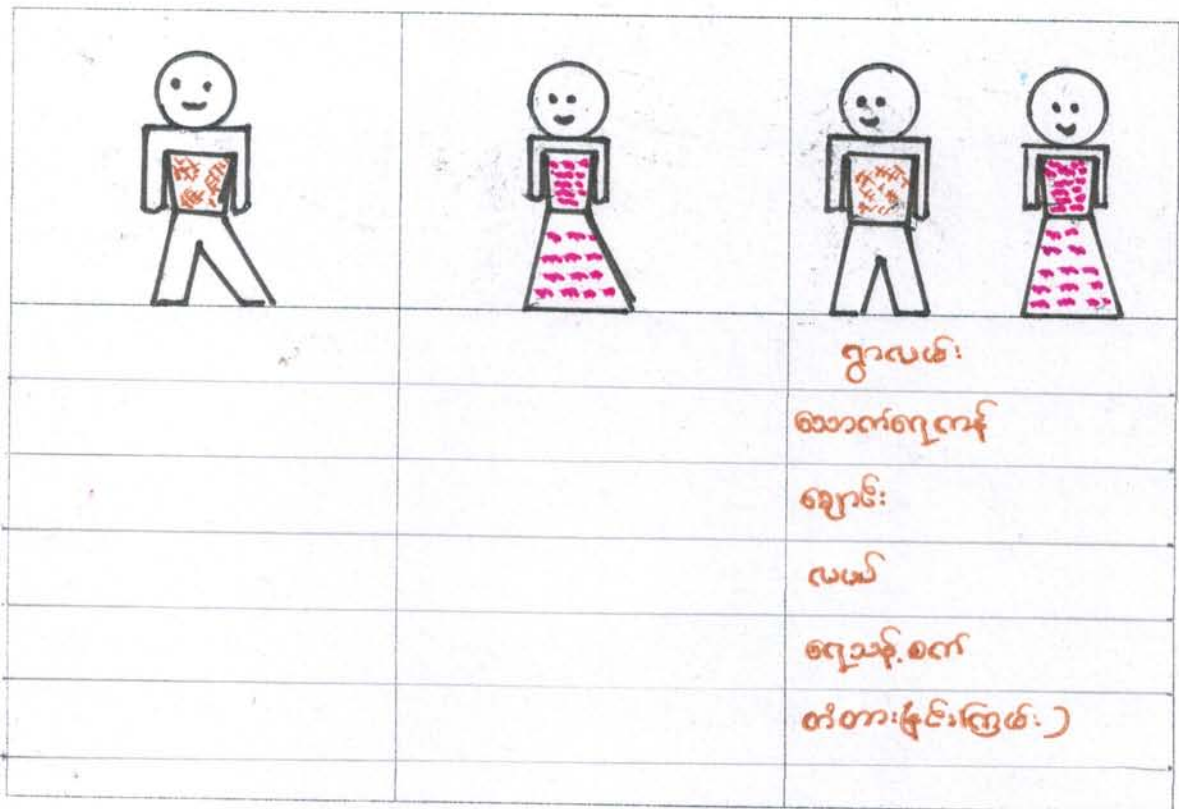 ရွာလမ်း
သောက်ရေကန်
ချောင်း
လမယ်
ရေသန့်စက်
တံတား(နှင်းကြမ်း)